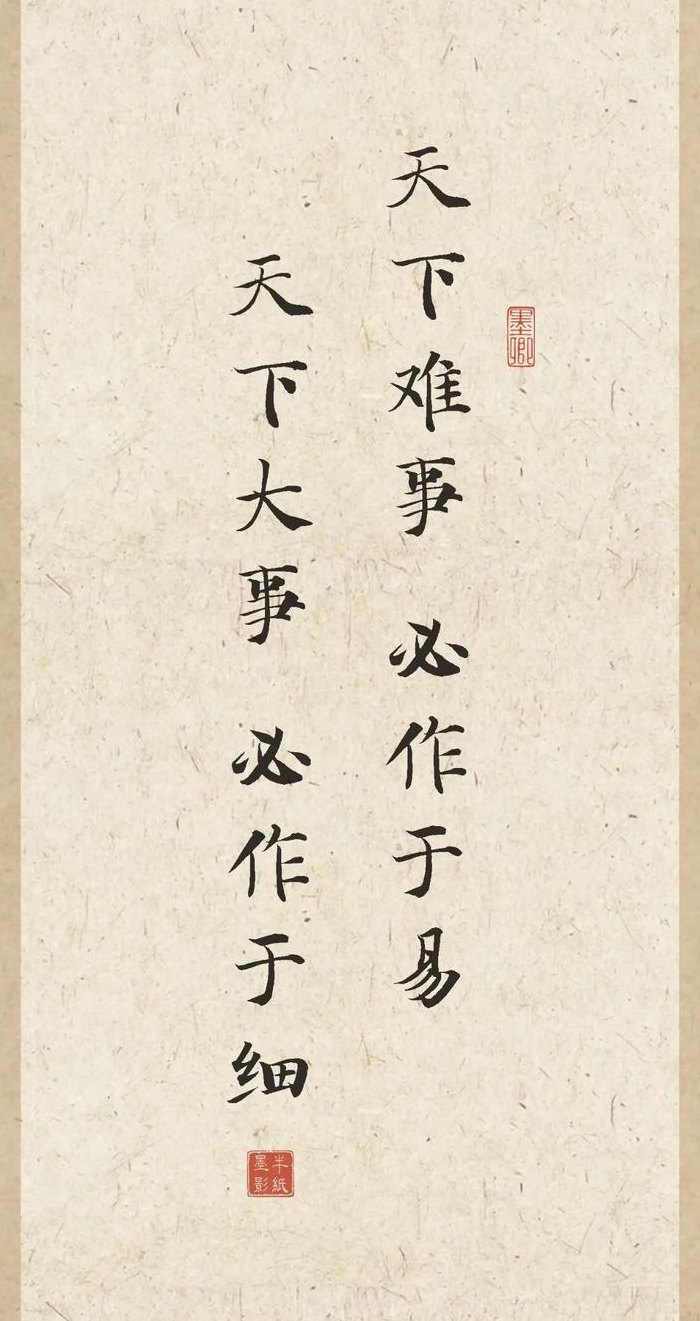 天下难事 必作于易
墨卿
天下大事 必作于细
半纸墨影